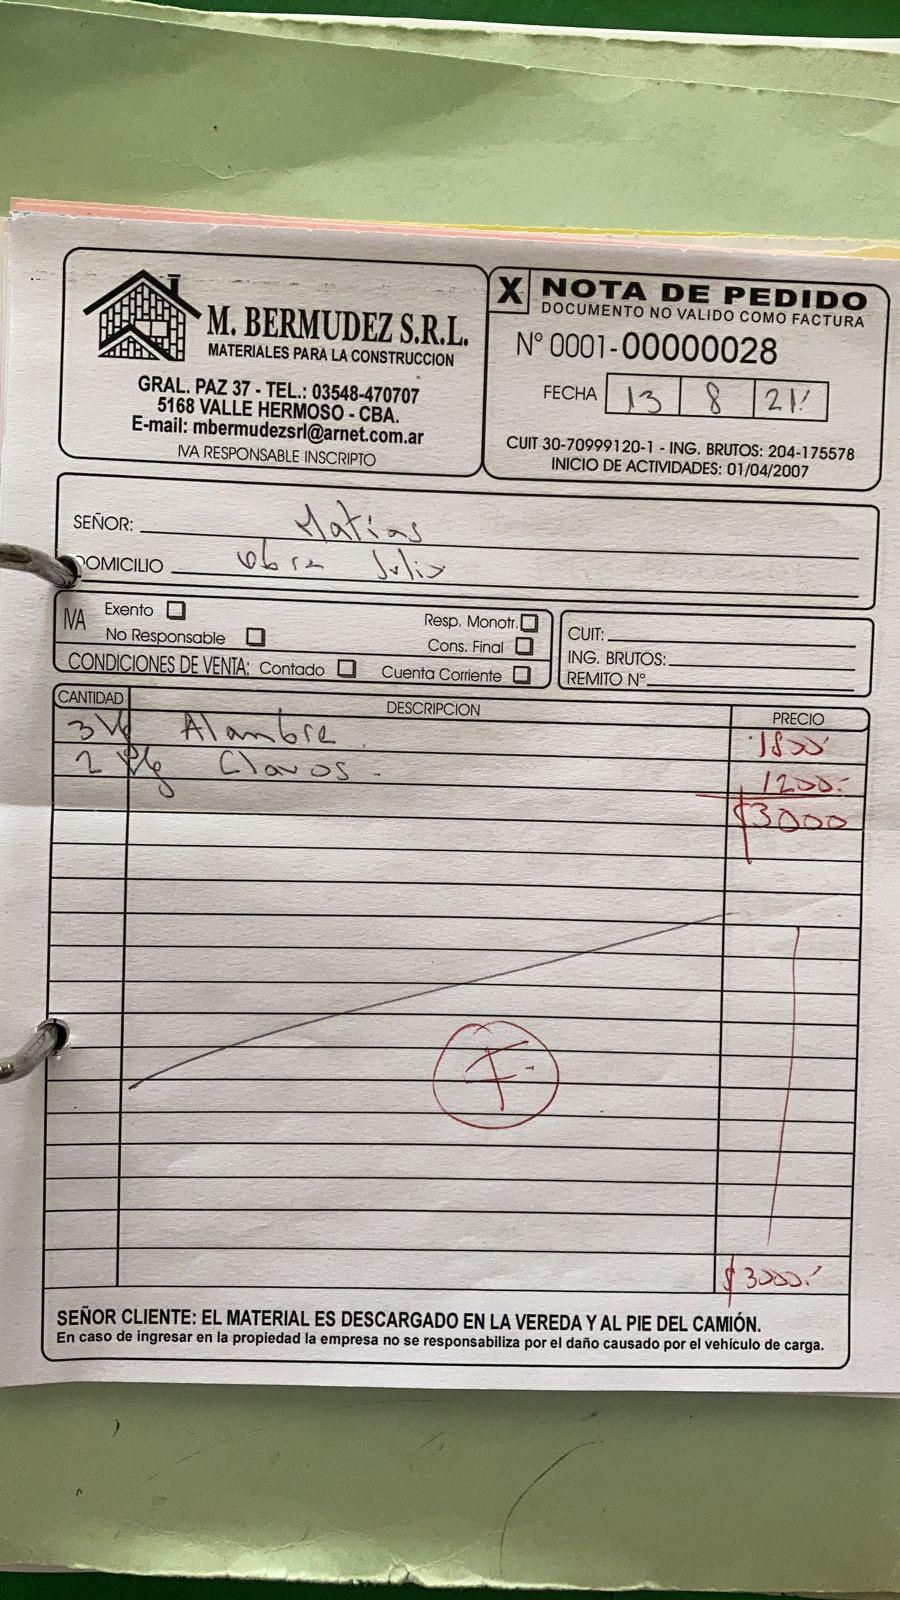 M. BERMUDEZ S.R.L.
MATERIALES PARA LA CONSTRUCCION
GRAL. PAZ 37 - TEL.: 03548-470707
5168 VALLE HERMOSO - CBA.
E-mail: mbermudezsrl@arnet.com.ar
IVA RESPONSABLE INSCRIPTO
X NOTA DE PEDIDO
DOCUMENTO NO VALIDO COMO FACTURA
Nº 0001-00000028
FECHA 13 8 21
CUIT 30-70999120-1 - ING. BRUTOS: 204-175578
INICIO DE ACTIVIDADES: 01/04/2007
SEÑOR: Matias
DOMICILIO Obra Julio
IVA Exento Resp. Monotr.
No Responsable Cons. Final
CONDICIONES DE VENTA: Contado Cuenta Corriente
CUIT:
ING. BRUTOS:
REMITO Nº
CANTIDAD DESCRIPCION PRECIO
3 Kg Alambre. 1800
2 Kg Clavos. 1200.
$3000
$3000.
SEÑOR CLIENTE: EL MATERIAL ES DESCARGADO EN LA VEREDA Y AL PIE DEL CAMIÓN.
En caso de ingresar en la propiedad la empresa no se responsabiliza por el daño causado por el vehículo de carga.